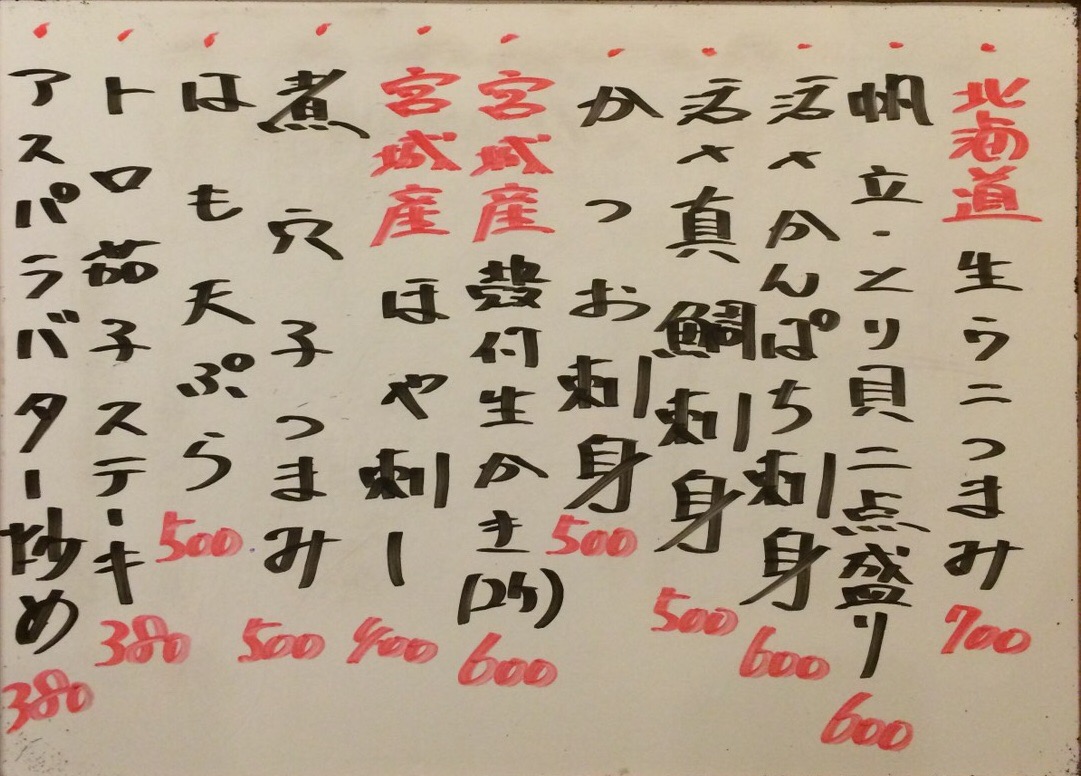 北海道生ウニつまみ 700
帆立・とり貝二点盛り 600
活〆かんぱち刺身 600
活〆真鯛刺身 500
かつお刺身 500
宮城産殻付生かき(2ケ) 600
宮城産ほや刺し 400
煮穴子つまみ 500
はも天ぷら 500
トロ茄子ステーキ 380
アスパラバター炒め 380